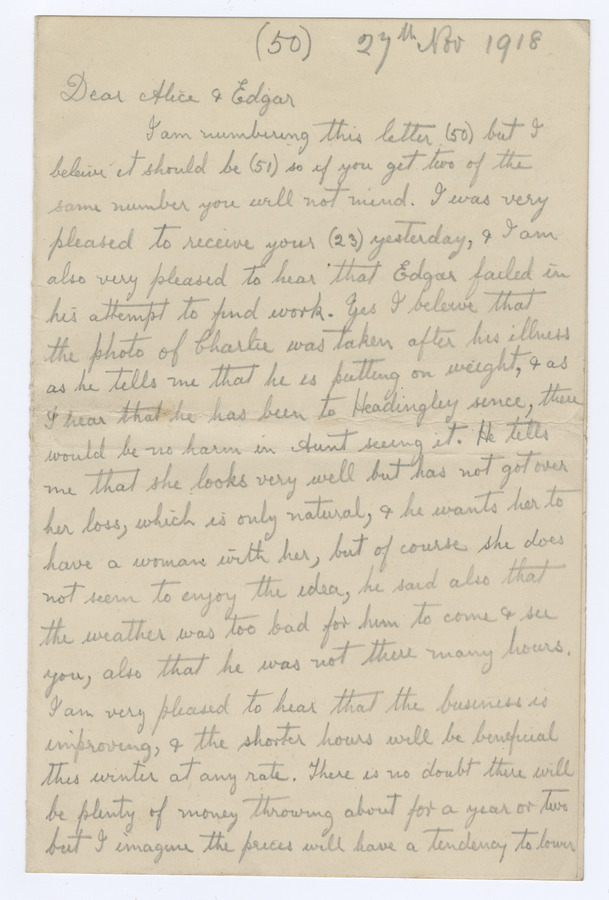 (50) 27th Nov 1918
Dear Alice & Edgar
I am numbering this letter (50) but I
beleive it should be (51) so if you get two of the
same number you will not mind. I was very
pleased to receive your (23) yesterday, & I am
also very pleased to hear that Edgar failed in
his attempt to find work. Yes I beleive that
the photo of Charlie was taken after his illness
as he tells me that he is putting on weight, & as
I hear that he has been to Headingley since, there
would be no harm in Aunt seeing it. He tells
me that she looks very well but has not got over
her loss, which is only natural, & he wants her to
have a woman with her, but of course she does
not seem to enjoy the idea, he said also that
the weather was too bad for him to come & see
you, also that he was not there many hours.
I am very pleased to hear that the business is
improving, & the shorter hours will be beneficial
this winter at any rate. There is no doubt there will
be plenty of money throwing about for a year or two
but I imagine the prices will have a tendency to lower